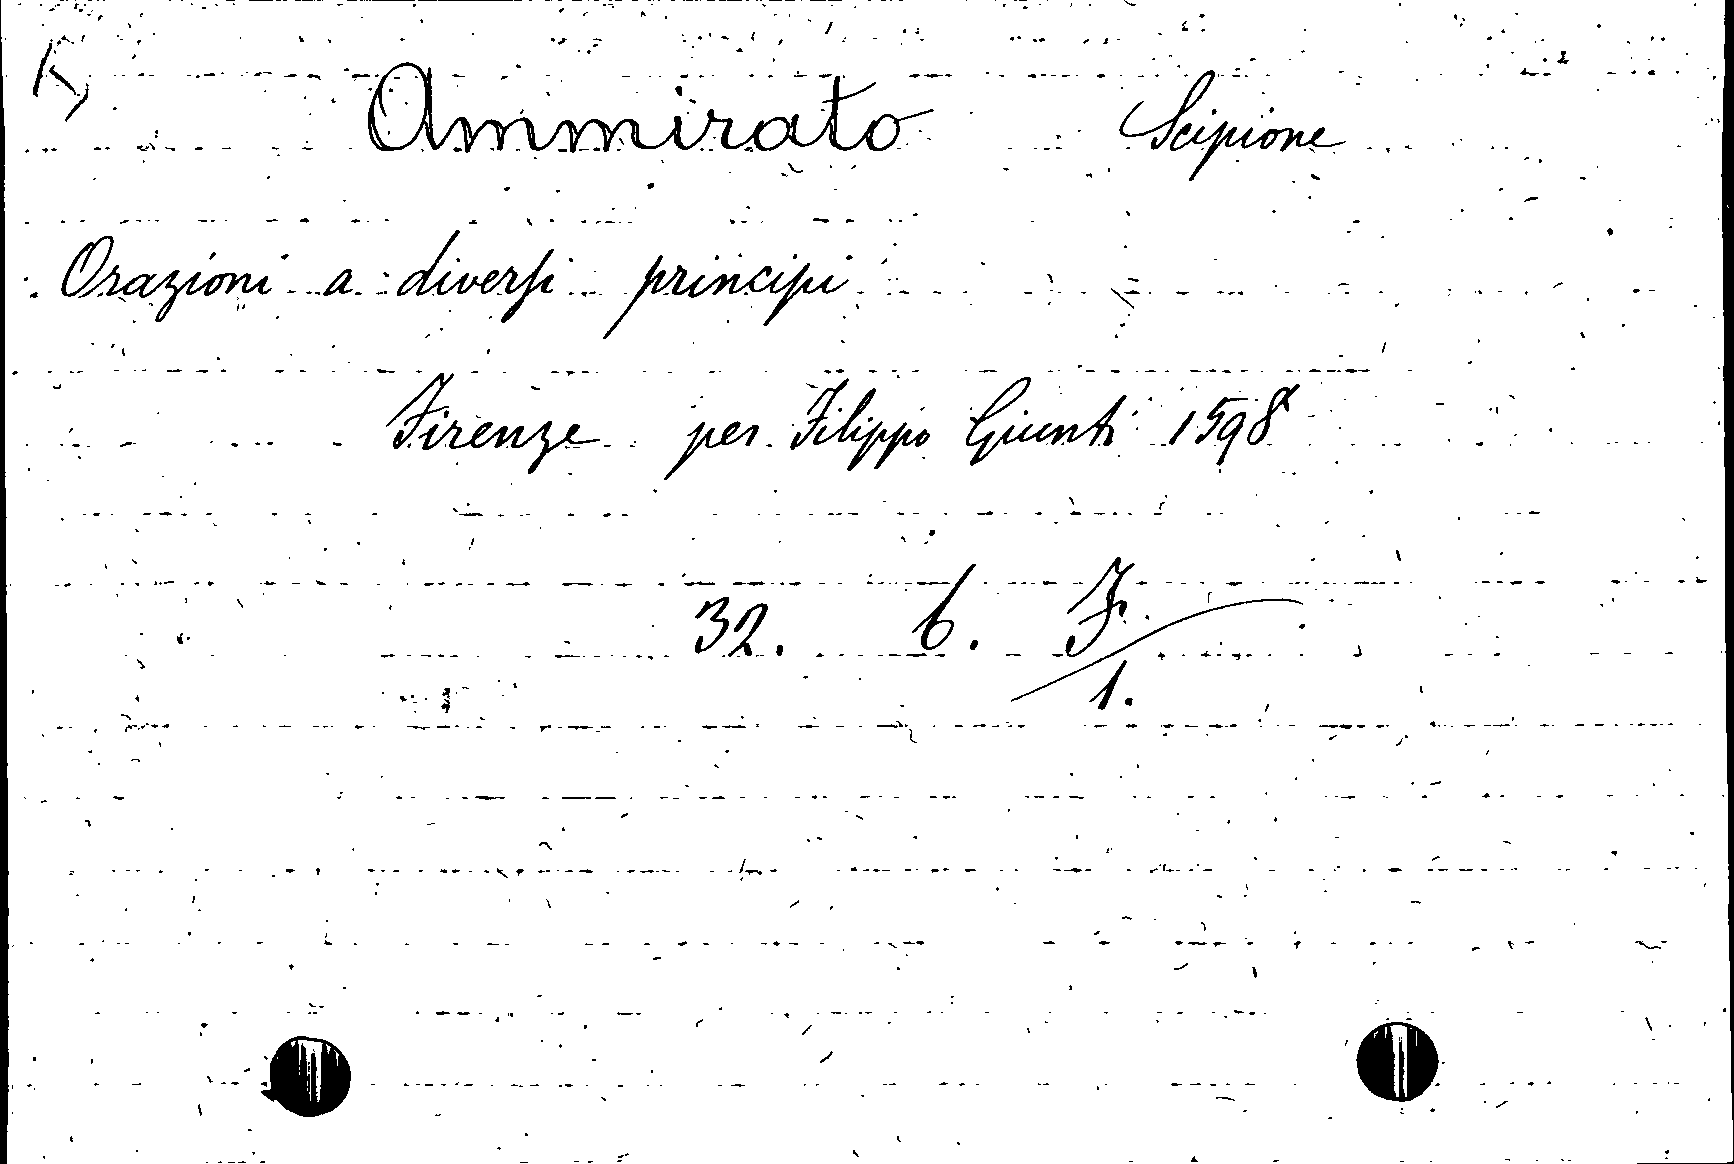 Ammirato Scipione
Orazioni a diversi principi
Firenze per Filippo Giunti 1598
32. 6. F
1.